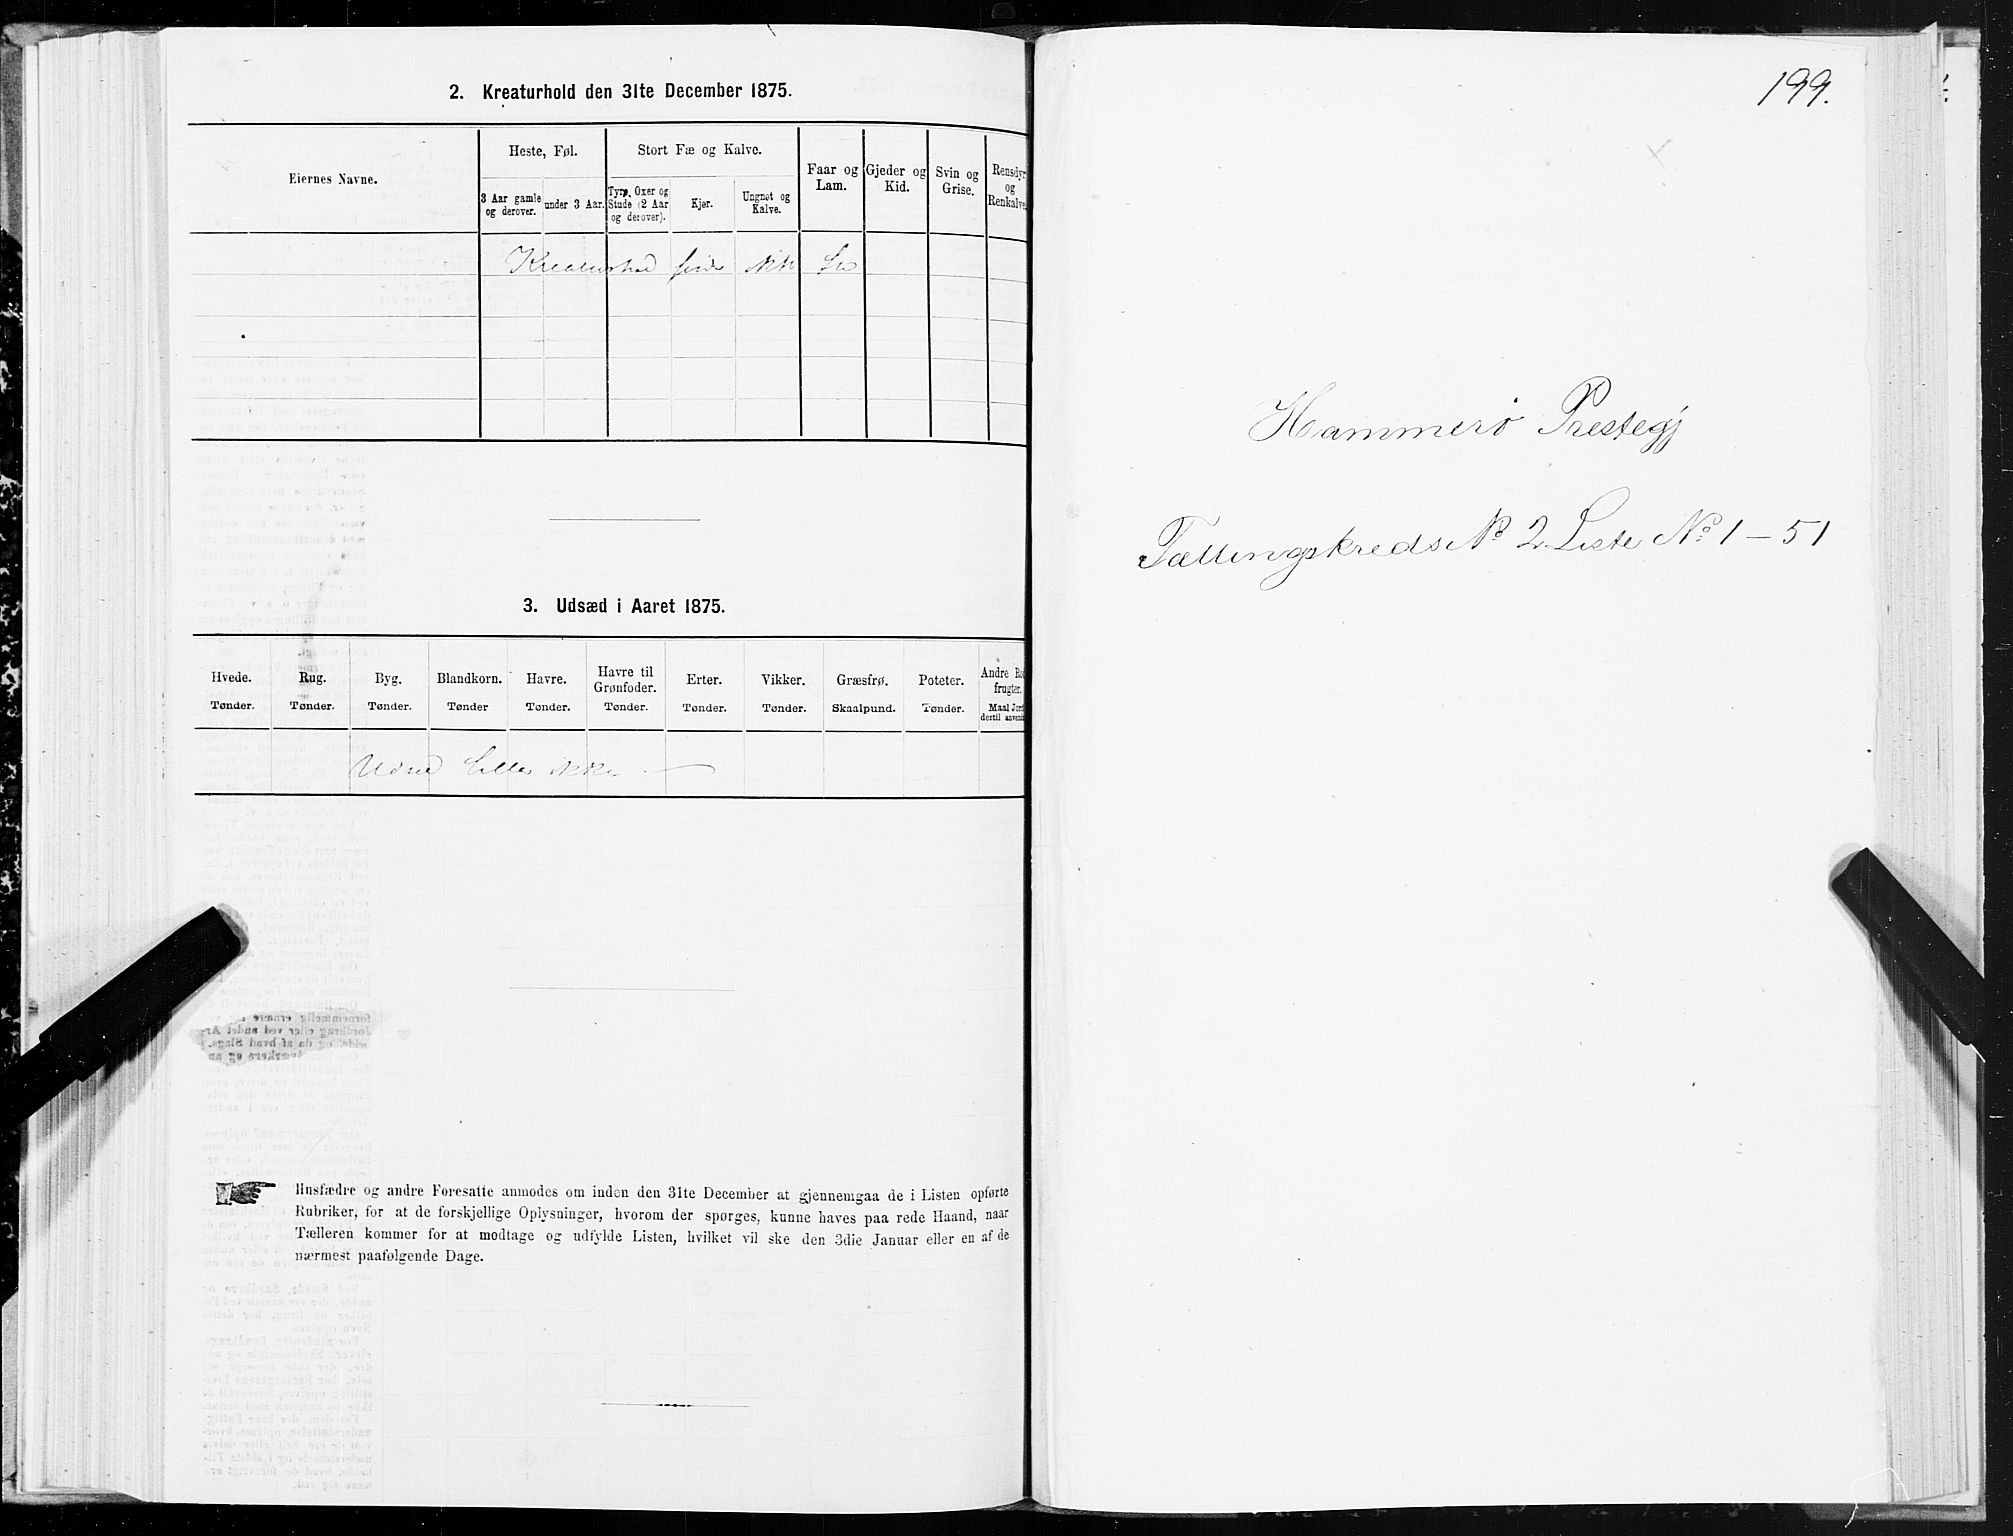 2. Kreaturhold den 31te December 1875.
Eiernes Navne.
Heste, Føl.
Stort Fæ og Kalve.
Faar og Lam.
Gjeder og Kid.
Svin og Grise.
Rensdyr og Renkalve.
3 Aar gamle og derover.
under 3 Aar.
Tyre, Oxer og Stude (2 Aar og derover).
Kjør.
Ungnøt og Kalve.
Kreaturhold finds ikke
3. Udsæd i Aaret 1875.
Hvede. Rug. Byg. Blandkorn. Havre. Havre til Grønfoder. Erter. Vikker. Græsfrø. Poteter. Andre Rod frugter.
Tønder. Tønder. Tønder. Tønder Tønder. Tønder. Tønder. Tønder. Skaalpund. Tønder. Maal Jord dertil anvendt
Udsæd heller ikke
Husfædre og andre Foresatte anmodes om inden den 31te December at gjennemgaa de i Listen opførte
Rubriker, for at de forskjellige Oplysninger, hvorom der spørges, kunne haves paa rede Haand, naar
Tælleren kommer for at modtage og udfylde Listen, hvilket vil ske den 3die Januar eller en af de
nærmest paafølgende Dage.
199.
Hammerø Prestegj
Tællingskreds No 2 Liste No 1 – 51